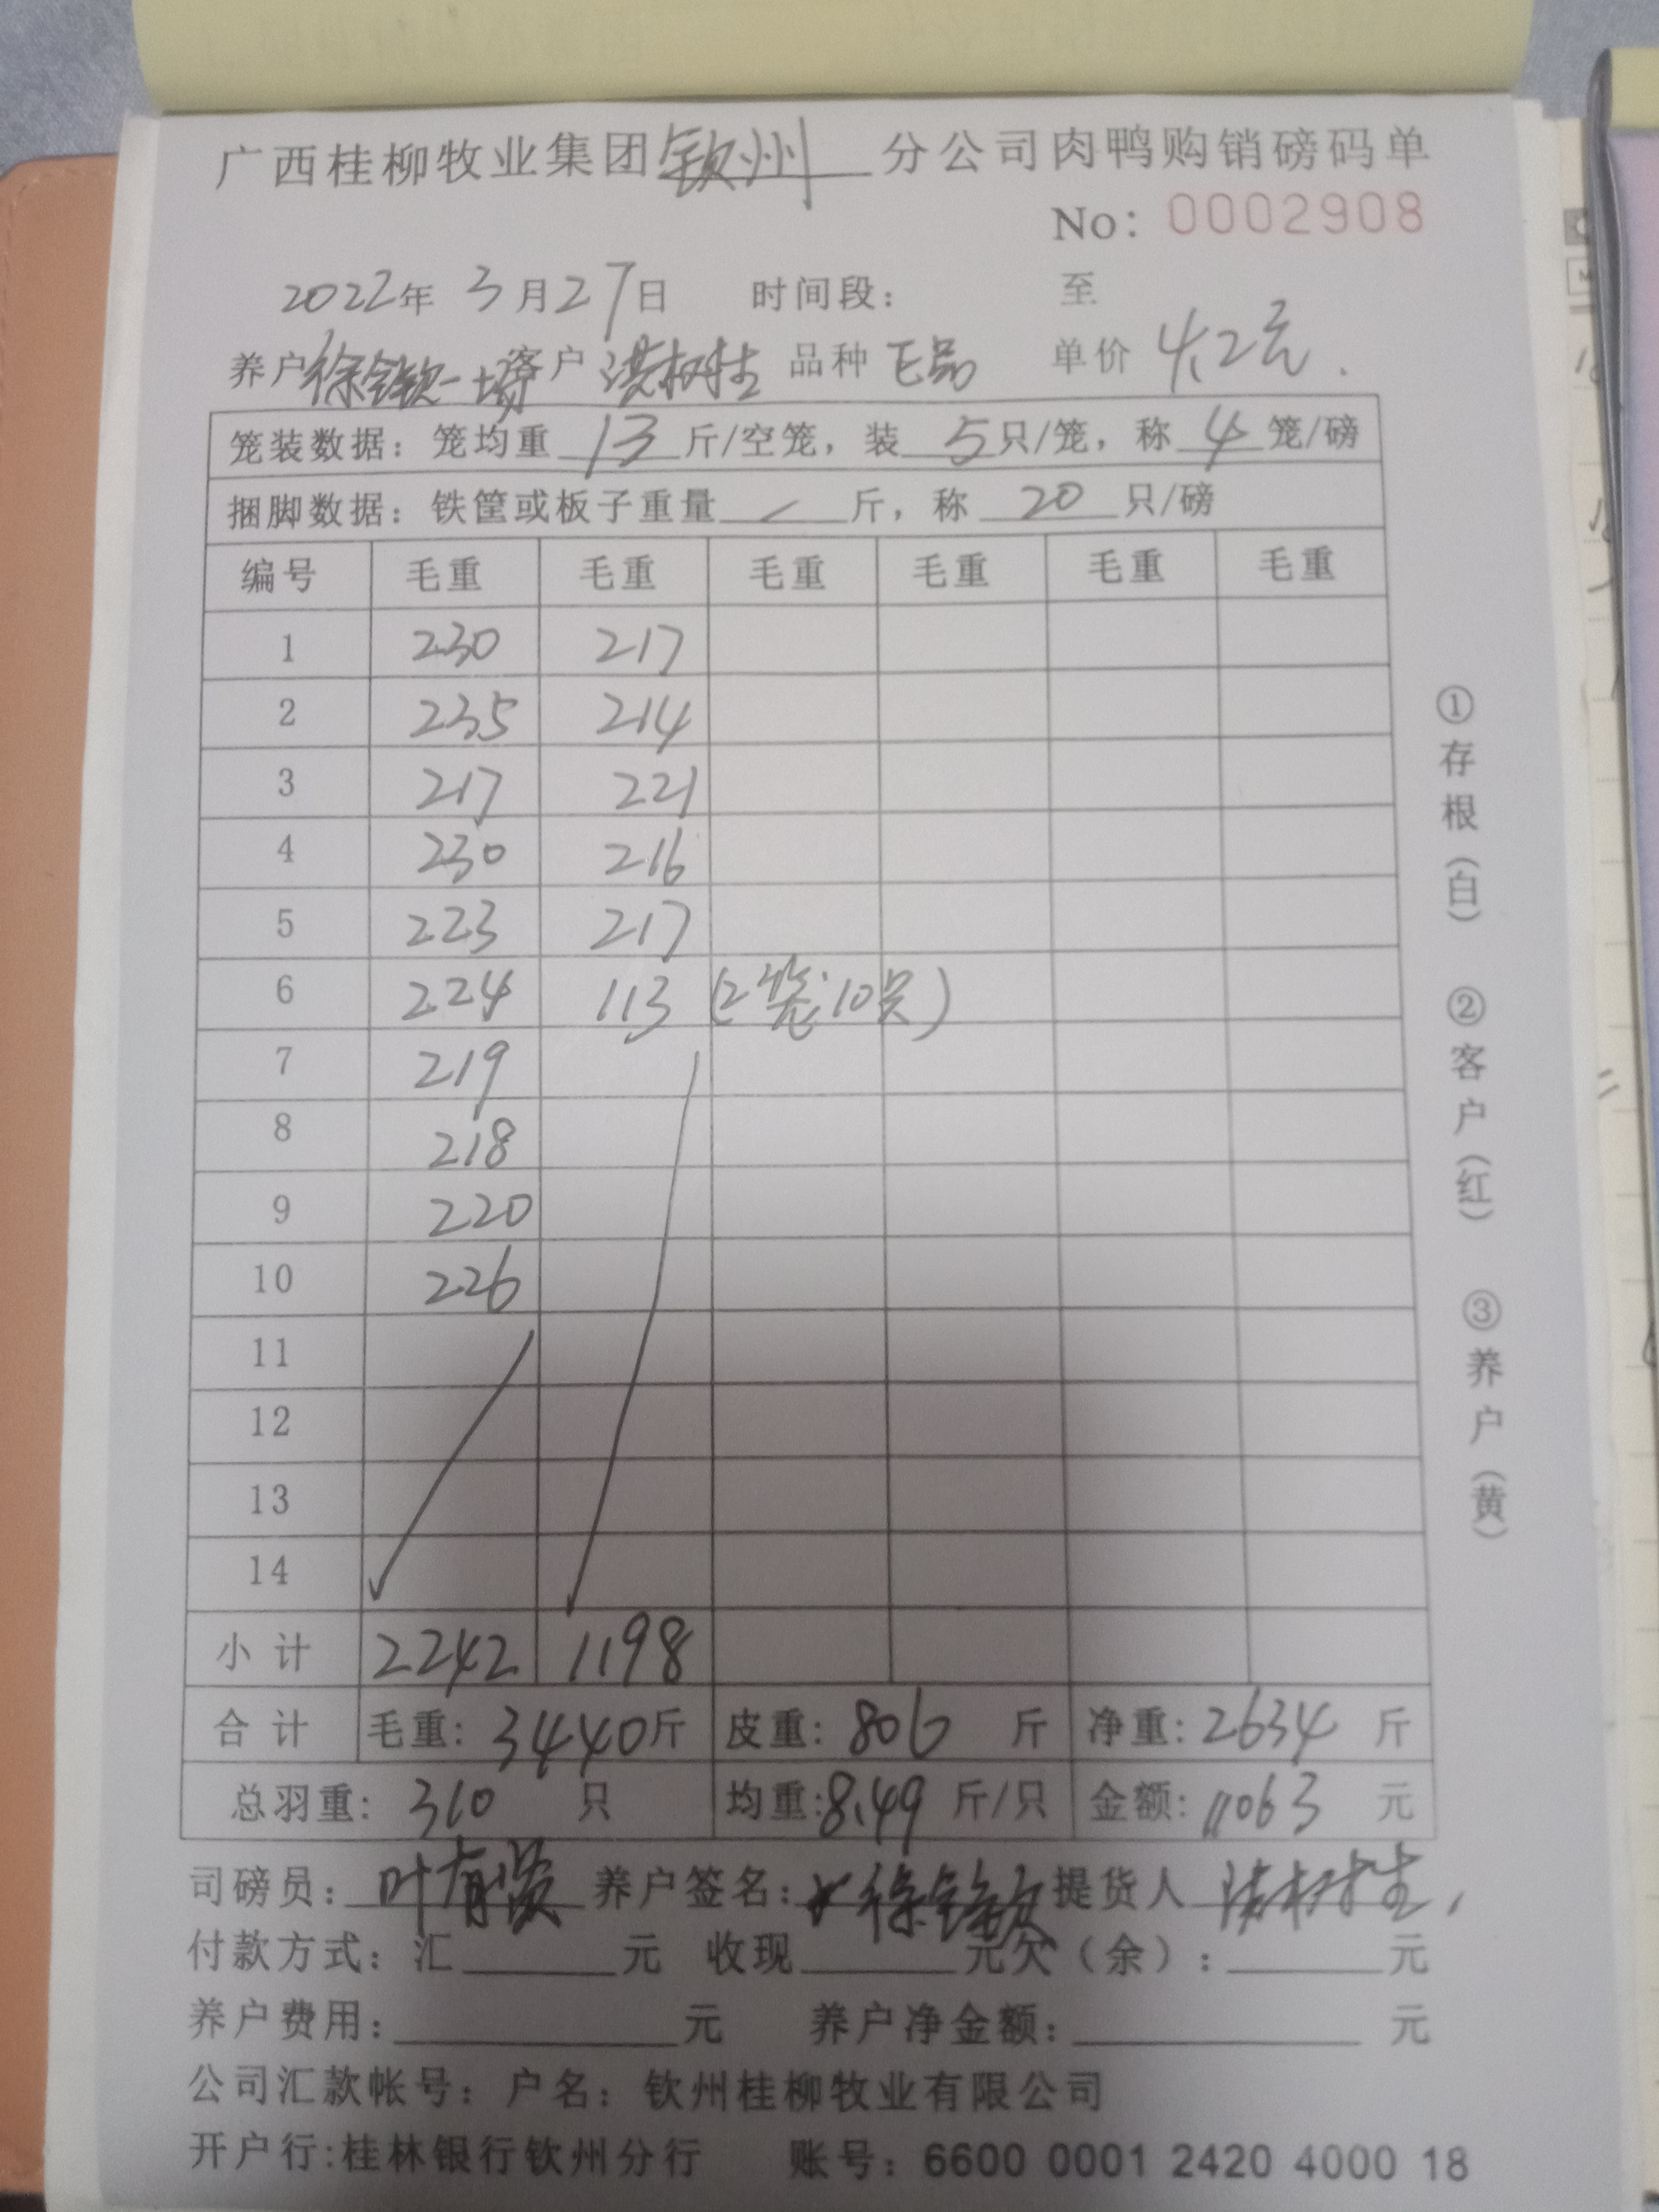 广西桂柳牧业集团钦州分公司肉鸭购销磅码单
No: 0002908
2022年 3月27日 时间段: 至
养户 徐钦一场 客户 洪树生 品种 正品 单价 4.2元
笼装数据: 笼均重 13 斤/空笼, 装 5 只/笼, 称 4 笼/磅
捆脚数据: 铁筐或板子重量 / 斤, 称 20 只/磅
编号 毛重 毛重 毛重 毛重 毛重 毛重
1 230 217
2 235 214
3 217 221
4 230 216
5 223 217
6 224 113 (2笼:10只)
7 219
8 218
9 220
10 226
11
12
13
14
小计 2242 1198
合计 毛重: 3440斤 皮重: 806 斤 净重: 2634 斤
总羽重: 310 只 均重:8.49 斤/只 金额: 11063 元
司磅员: 叶有 养户签名: 徐 提货人 洪树生
付款方式: 汇 元 收现 元欠(余): 元
养户费用: 元 养户净金额: 元
公司汇款帐号: 户名: 钦州桂柳牧业有限公司
开户行:桂林银行钦州分行 账号: 6600 0001 2420 4000 18
①存根(白) ②客户(红) ③养户(黄)